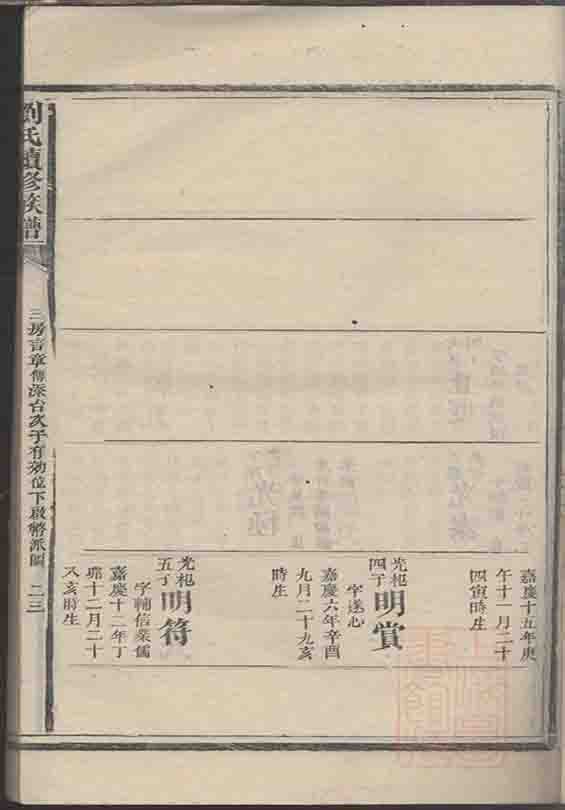 嘉慶十五年庚
午十一月二十
四寅時生
光杞
四丁
明賞
字遂心
嘉慶六年辛酉
九月二十九亥
時生
光杞
五丁
明符
字輔信業儒
嘉慶十二年丁
卯十二月二十
八亥時生
劉氏續修族譜
三房言章傳深台次子有効位下啟
派圖 二三